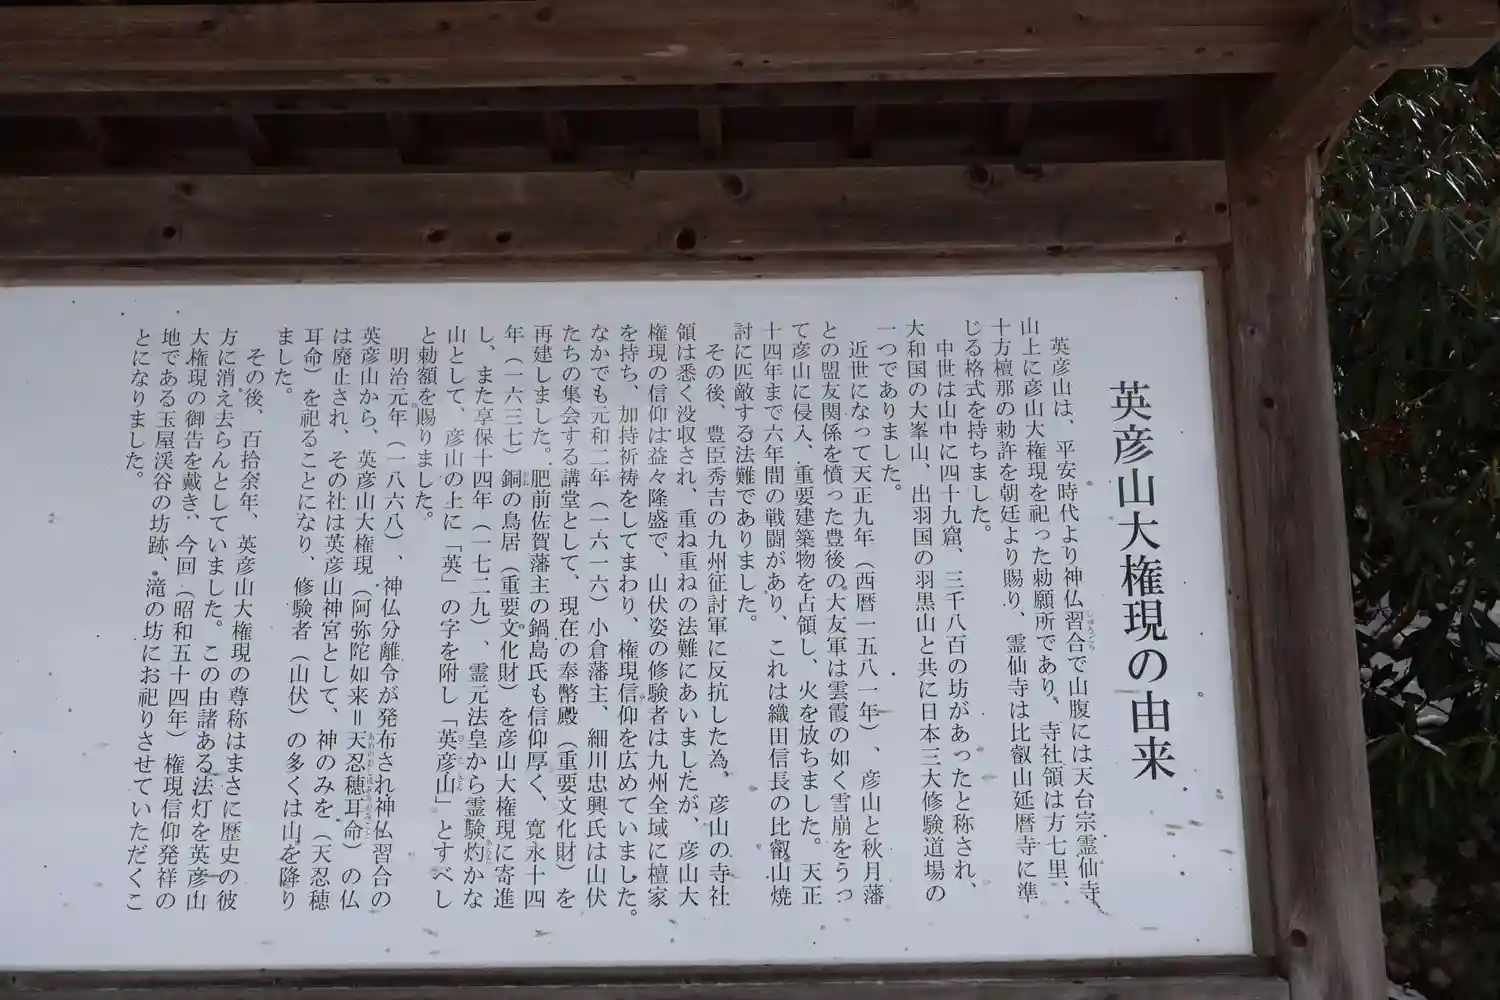 英彦山大権現の由来
英彦山は、平安時代より神仏習合で山腹には天台宗霊仙寺、
山上に彦山大権現を祀った勅願所であり、寺社領は方七里、
十方檀那の勅許を朝廷より賜り、霊仙寺は比叡山延暦寺に準
じる格式を持ちました。
中世は山中に四十九窟、三千八百の坊があったと称され、
大和国の大峯山、出羽国の羽黒山と共に日本三大修験道場の
一つでありました。
近世になって天正九年（西暦一五八一年）、彦山と秋月藩
との盟友関係を憤った豊後の大友軍は雲霞の如く雪崩をうっ
て彦山に侵入、重要建築物を占領し、火を放ちました。天正
十四年まで六年間の戦闘があり、これは織田信長の比叡山焼
討に匹敵する法難でありました。
その後、豊臣秀吉の九州征討軍に反抗した為、彦山の寺社
領は悉く没収され、重ね重ねの法難にあいましたが、彦山大
権現の信仰は益々隆盛で、山伏姿の修験者は九州全域に檀家
を持ち、加持祈祷をしてまわり、権現信仰を広めていました。
なかでも元和二年（一六一六）小倉藩主、細川忠興氏は山伏
たちの集会する講堂として、現在の奉幣殿（重要文化財）を
再建しました。肥前佐賀藩主の鍋島氏も信仰厚く、寛永十四
年（一六三七）銅の鳥居（重要文化財）を彦山大権現に寄進
し、また享保十四年（一七二九）、霊元法皇から霊験灼かな
山として、彦山の上に「英」の字を附し「英彦山」とすべし
と勅額を賜りました。
明治元年（一八六八）、神仏分離令が発布され神仏習合の
英彦山から、英彦山大権現（阿弥陀如来＝天忍穂耳命）の仏
は廃止され、その社は英彦山神宮として、神のみを（天忍穂
耳命）を祀ることになり、修験者（山伏）の多くは山を降り
ました。
その後、百拾余年、英彦山大権現の尊称はまさに歴史の彼
方に消え去らんとしていました。この由諸ある法灯を英彦山
大権現の御告を戴き、今回（昭和五十四年）権現信仰発祥の
地である玉屋渓谷の坊跡、滝の坊にお祀りさせていただくこ
とになりました。